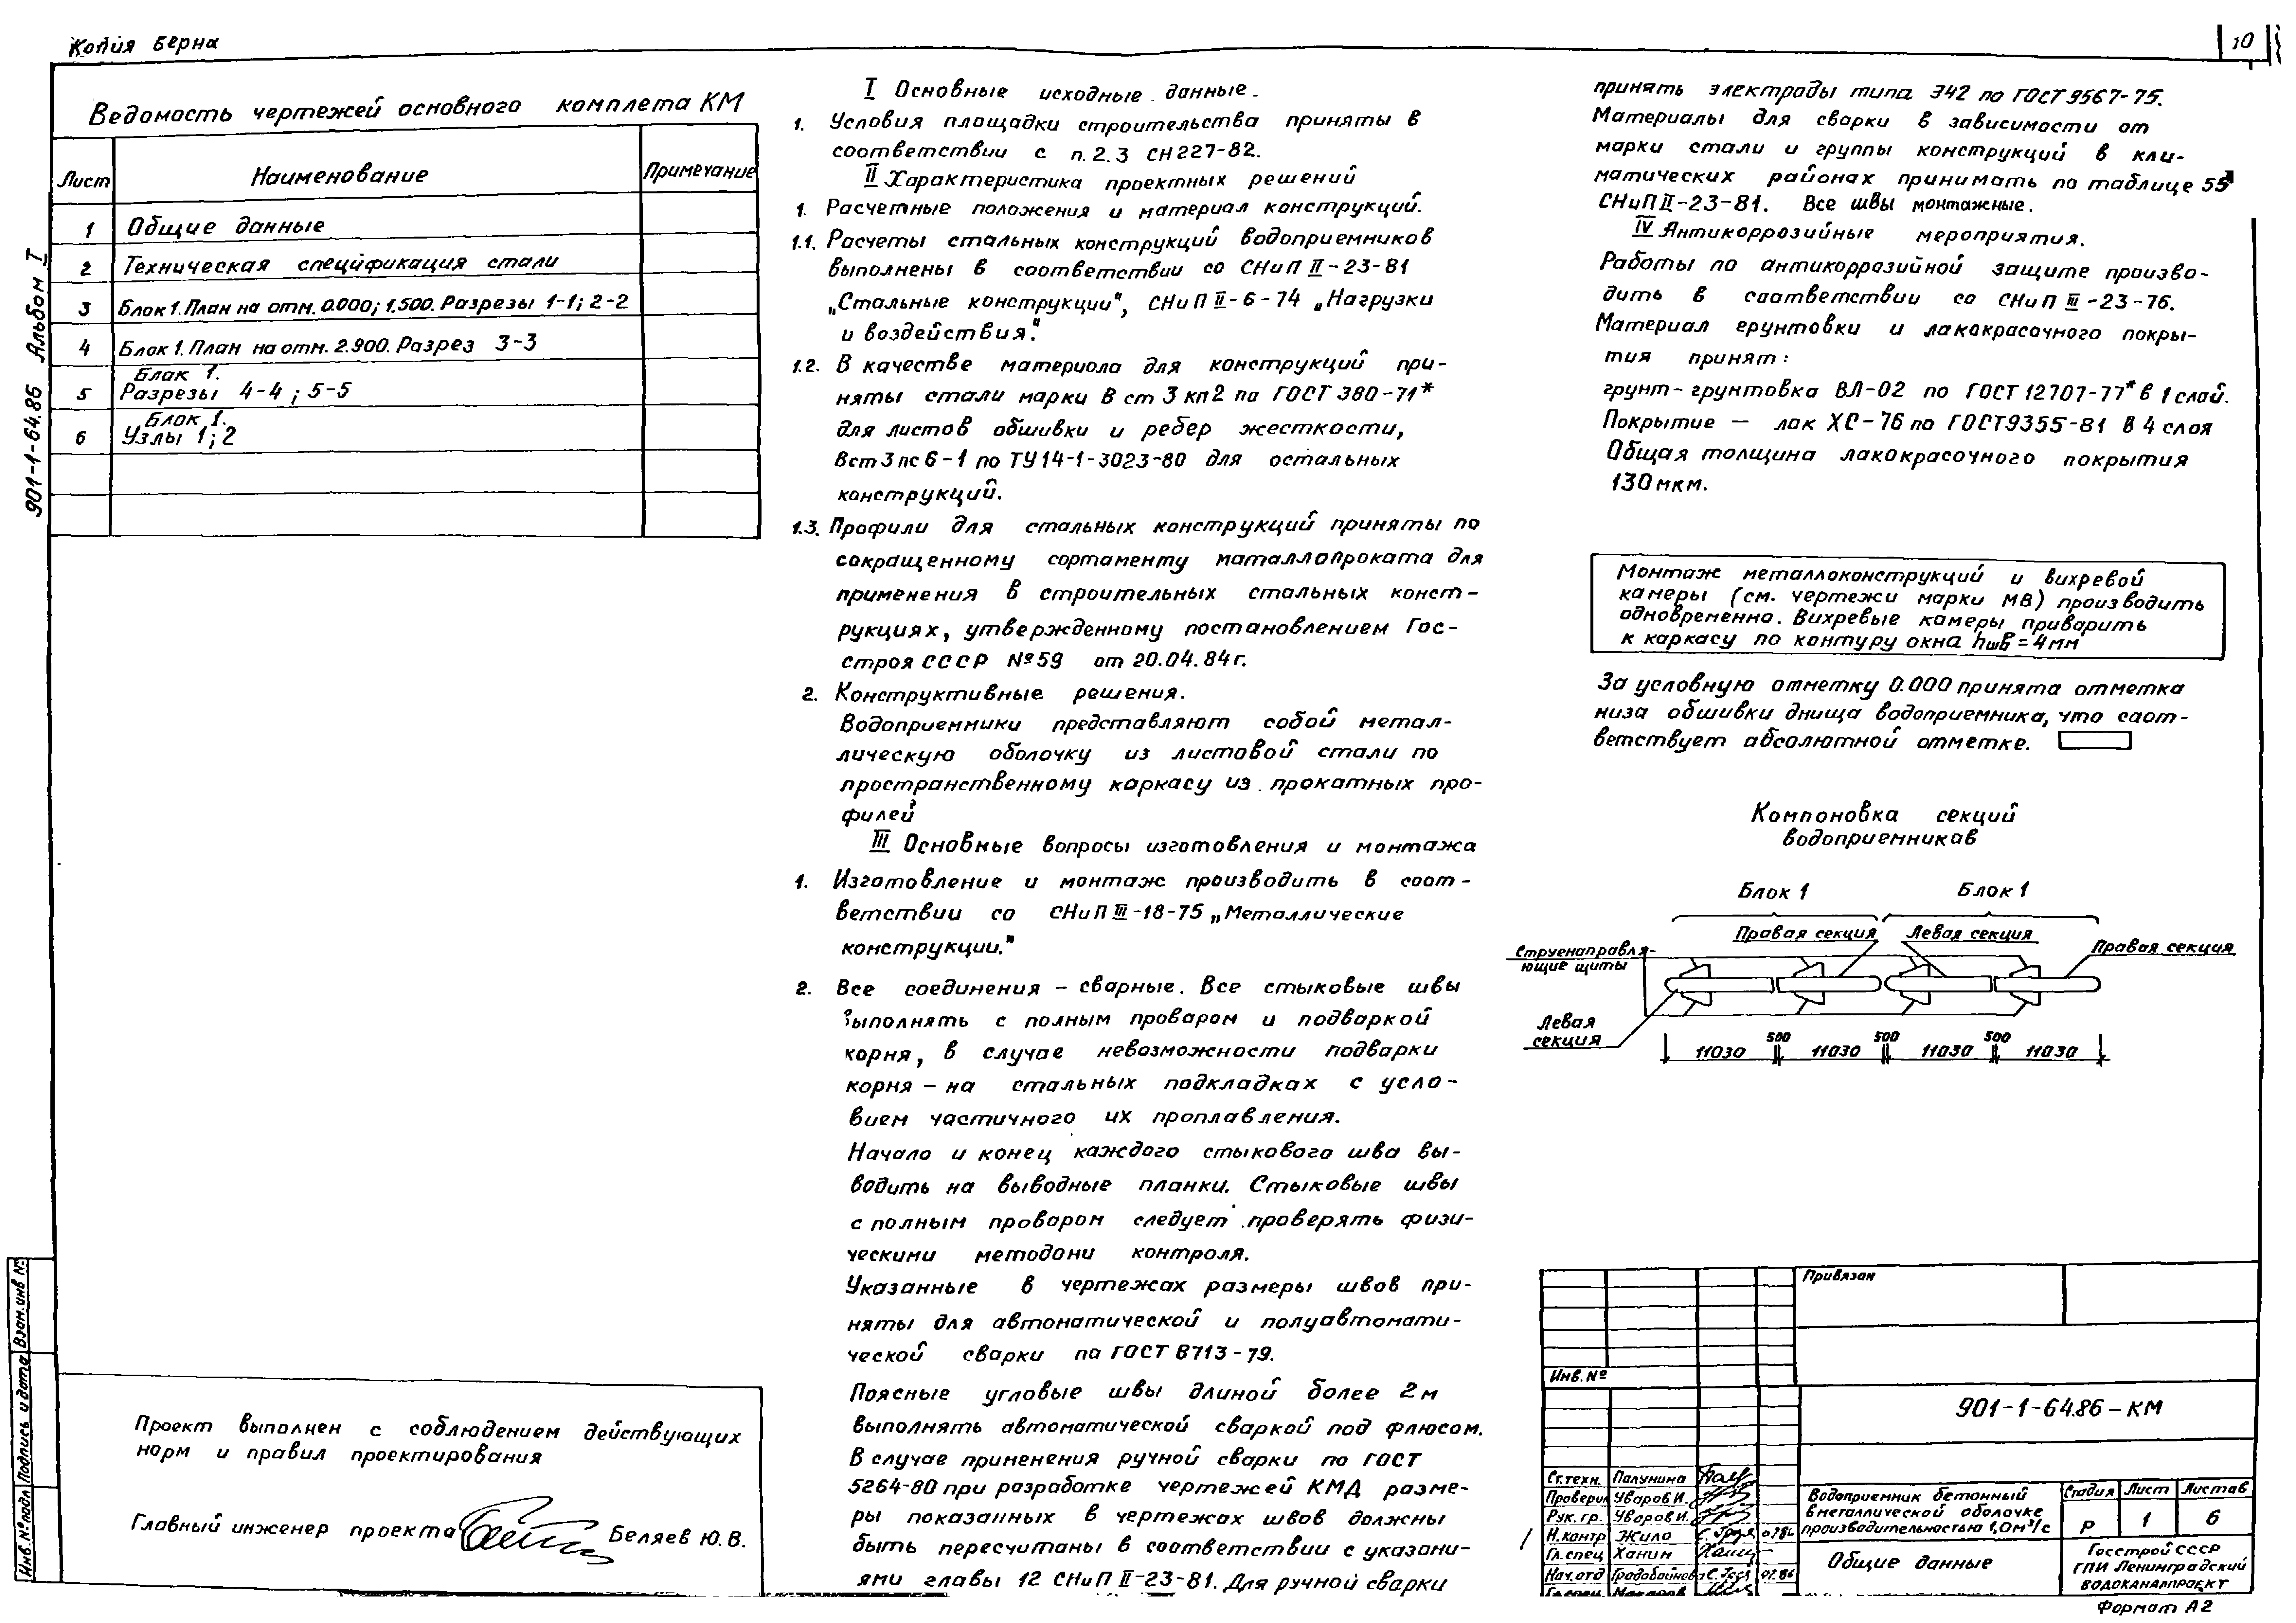 Копия Верна
10
901-1-64.86 Альбом I
Ведомость чертежей основного комплета КМ
Лист Наименование Примечание
1 Общие данные
2 Техническая спецификация стали
3 Блок 1. План на отм. 0.000; 1.500. Разрезы 1-1; 2-2
4 Блок 1. План на отм. 2.900. Разрез 3-3
Блак 1.
5 Разрезы 4-4; 5-5
Блок 1.
6 Узлы 1; 2
Проект выполнен с соблюдением действующих
норм и правил проектирования
Главный инженер проекта Беляев Ю.В.
Инв. № подл Подпись и дата Взам. инв №
I Основные исходные данные.
1. Условия площадки строительства приняты в
соответствии с п. 2.3 СН 227-82.
II Характеристика проектных решений
1. Расчетные положения и материал конструкций.
1.1. Расчеты стальных конструкций водоприемников
выполнены в соответствии со СНиП II-23-81
„Стальные конструкции", СНиП II-6-74 „Нагрузки
и воздействия."
1.2. В качестве материола для конструкций при-
няты стали марки В ст 3 кп2 по ГОСТ 380-71*
для листов обшивки и ребер жесткости,
Вст 3 пс 6-1 по ТУ 14-1-3023-80 для остальных
конструкций.
1.3. Профили для стальных конструкций приняты по
сокращенному сортаменту маталлопроката для
применения в строительных стальных конст-
рукциях, утвержденному постановлением Гос-
строя СССР №59 от 20.04.84г.
2. Конструктивные решения.
Водоприемники представляют собой метал-
лическую оболочку из листовой стали по
пространственному каркасу из прокатных про-
филей
III Основные вопросы изготовления и монтажа
1. Изготовление и монтаж производить в соот-
ветствии со СНиП III-18-75 „Металлические
конструкции."
2. Все соединения - сварные. Все стыковые швы
выполнять с полным проваром и подваркой
корня, в случае невозможности подварки
корня - на стальных подкладках с усло-
вием частичного их проплавления.
Начало и конец каждого стыкового шва вы-
водить на выводные планки. Стыковые швы
с полным проваром следует проверять физи-
ческими методами контроля.
Указанные в чертежах размеры швов при-
няты для автоматической и полуавтомати-
ческой сварки па ГОСТ 8713-79.
Поясные угловые швы длиной более 2м
выполнять автоматической сваркой под флюсом.
В случае применения ручной сварки по ГОСТ
5264-80 при разработке чертежей КМД разме-
ры показанных в чертежах швов должны
быть пересчитаны в соответствии с указани-
ями главы 12 СНиП II-23-81. Для ручной сварки
принять электроды типа Э42 по ГОСТ 9567-75.
Материалы для сварки в зависимости от
марки стали и группы конструкций в кли-
матических районах принимать по таблице 55
СНиП II-23-81. Все швы монтажные.
IV Антикоррозийные мероприятия.
Работы по антикоррозийной защите произво-
дить в соответствии со СНиП III-23-76.
Материал грунтовки и лакокрасочного покры-
тия принят:
грунт-грунтовка ВЛ-02 по ГОСТ 12707-77* в 1 слой.
Покрытие - лак ХС-76 по ГОСТ 9355-81 в 4 слоя
Общая толщина лакокрасочного покрытия
130 мкм.
Монтаж металлоконструкций и вихревой
камеры (см. чертежи марки МВ) производить
одновременно. Вихревые камеры приварить
к каркасу по контуру окна hшв=4мм
За условную отметку 0.000 принята отметка
низа обшивки днища водоприемника, что соот-
ветствует абсолютной отметке.
Компоновка секций
водоприемников
Блок 1 Блок 1
Правая секция Левая секция Правая секция
Струенаправля-
ющие щиты
Левая
секция
500 500 500
11030 11030 11030 11030
Привязан
Инв. №
901-1-64.86-КМ
Ст.техн. Палунина
Проверил Уваров И.
Рук. гр. Уваров И.
Н.контр Жило 07.86
Гл.спец Ханин
Нач.отд 07.86
Водоприемник бетонный
в металлической оболочке
производительностью 1,0м³/с
Стадия Лист Листов
Р 1 6
Общие данные
Госстрой СССР
ГПИ Ленинградский
ВОДОКАНАЛПРОЕКТ
Формат А2